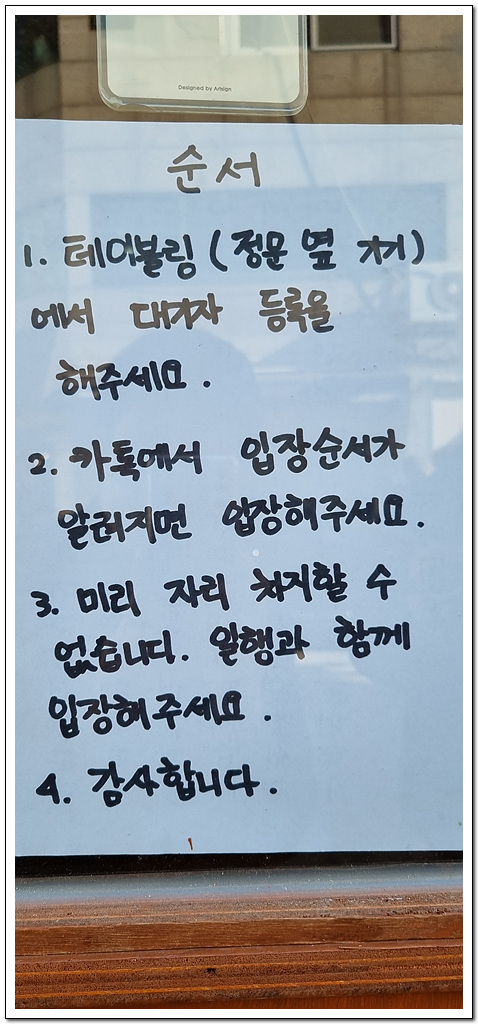 Designed by Artsign
순서
1. 테이블링 (정문 옆 기기)
에서 대기자 등록을
해주세요.
2. 카톡에서 입장순서가
알려지면 입장해주세요.
3. 미리 자리 차지할 수
없습니다. 일행과 함께
입장해주세요.
4. 감사합니다.